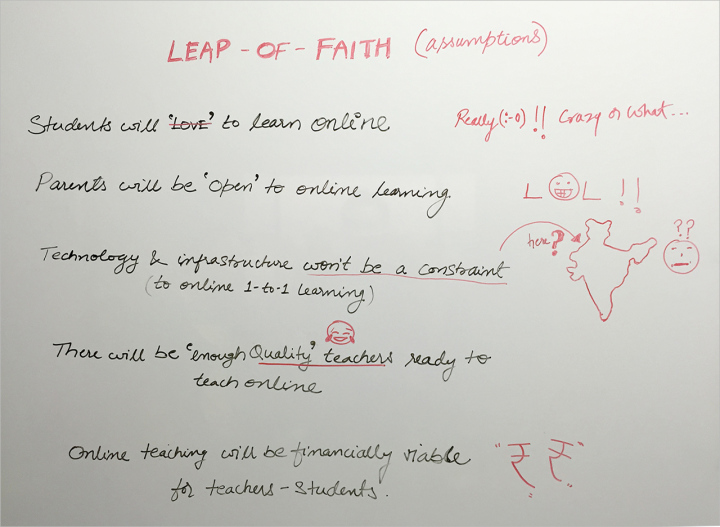 LEAP-OF-FAITH (assumptions)
Students will 'LOVE' to learn online
Really (:-O) !! Crazy or what...
Parents will be 'open' to online learning.
LOL !!
Technology & infrastructure won't be a constraint
(to online 1-to-1 learning)
here?
??
There will be 'enough Quality' teachers ready to
teach online
Online teaching will be financially viable
for teachers-students.
"₹ ₹"